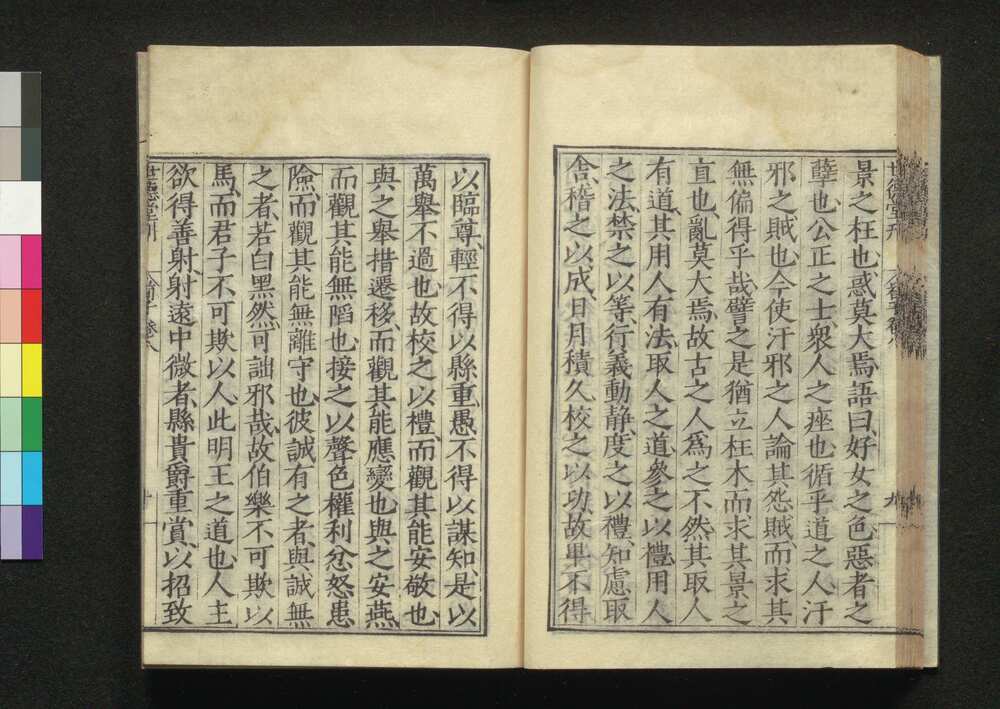 景之枉也惑莫大焉語曰好女之色惡者之
孽也公正之士衆人之痤也循乎道之人汙
邪之賊也今使汙邪之人論其怨賊而求其
無偏得乎哉譬之是猶立枉木而求其景之
直也亂莫大焉故古之人爲之不然其取人
有道其用人有法取人之道參之以禮用人
之法禁之以等行義動静度之以禮知慮取
舍稽之以成日月積久校之以功故卑不得
以臨尊輕不得以縣重愚不得以謀知是以
萬舉不過也故校之以禮而觀其能安敬也
與之舉措遷移而觀其能應變也與之安燕
而觀其能無䧟也接之以聲色權利忿怒患
險而觀其能無離守也彼誠有之者與誠無
之者若白黑然可詘邪哉故伯樂不可欺以
馬而君子不可欺以人此明王之道也人主
欲得善射射遠中微者縣貴爵重賞以招致
世德堂刊